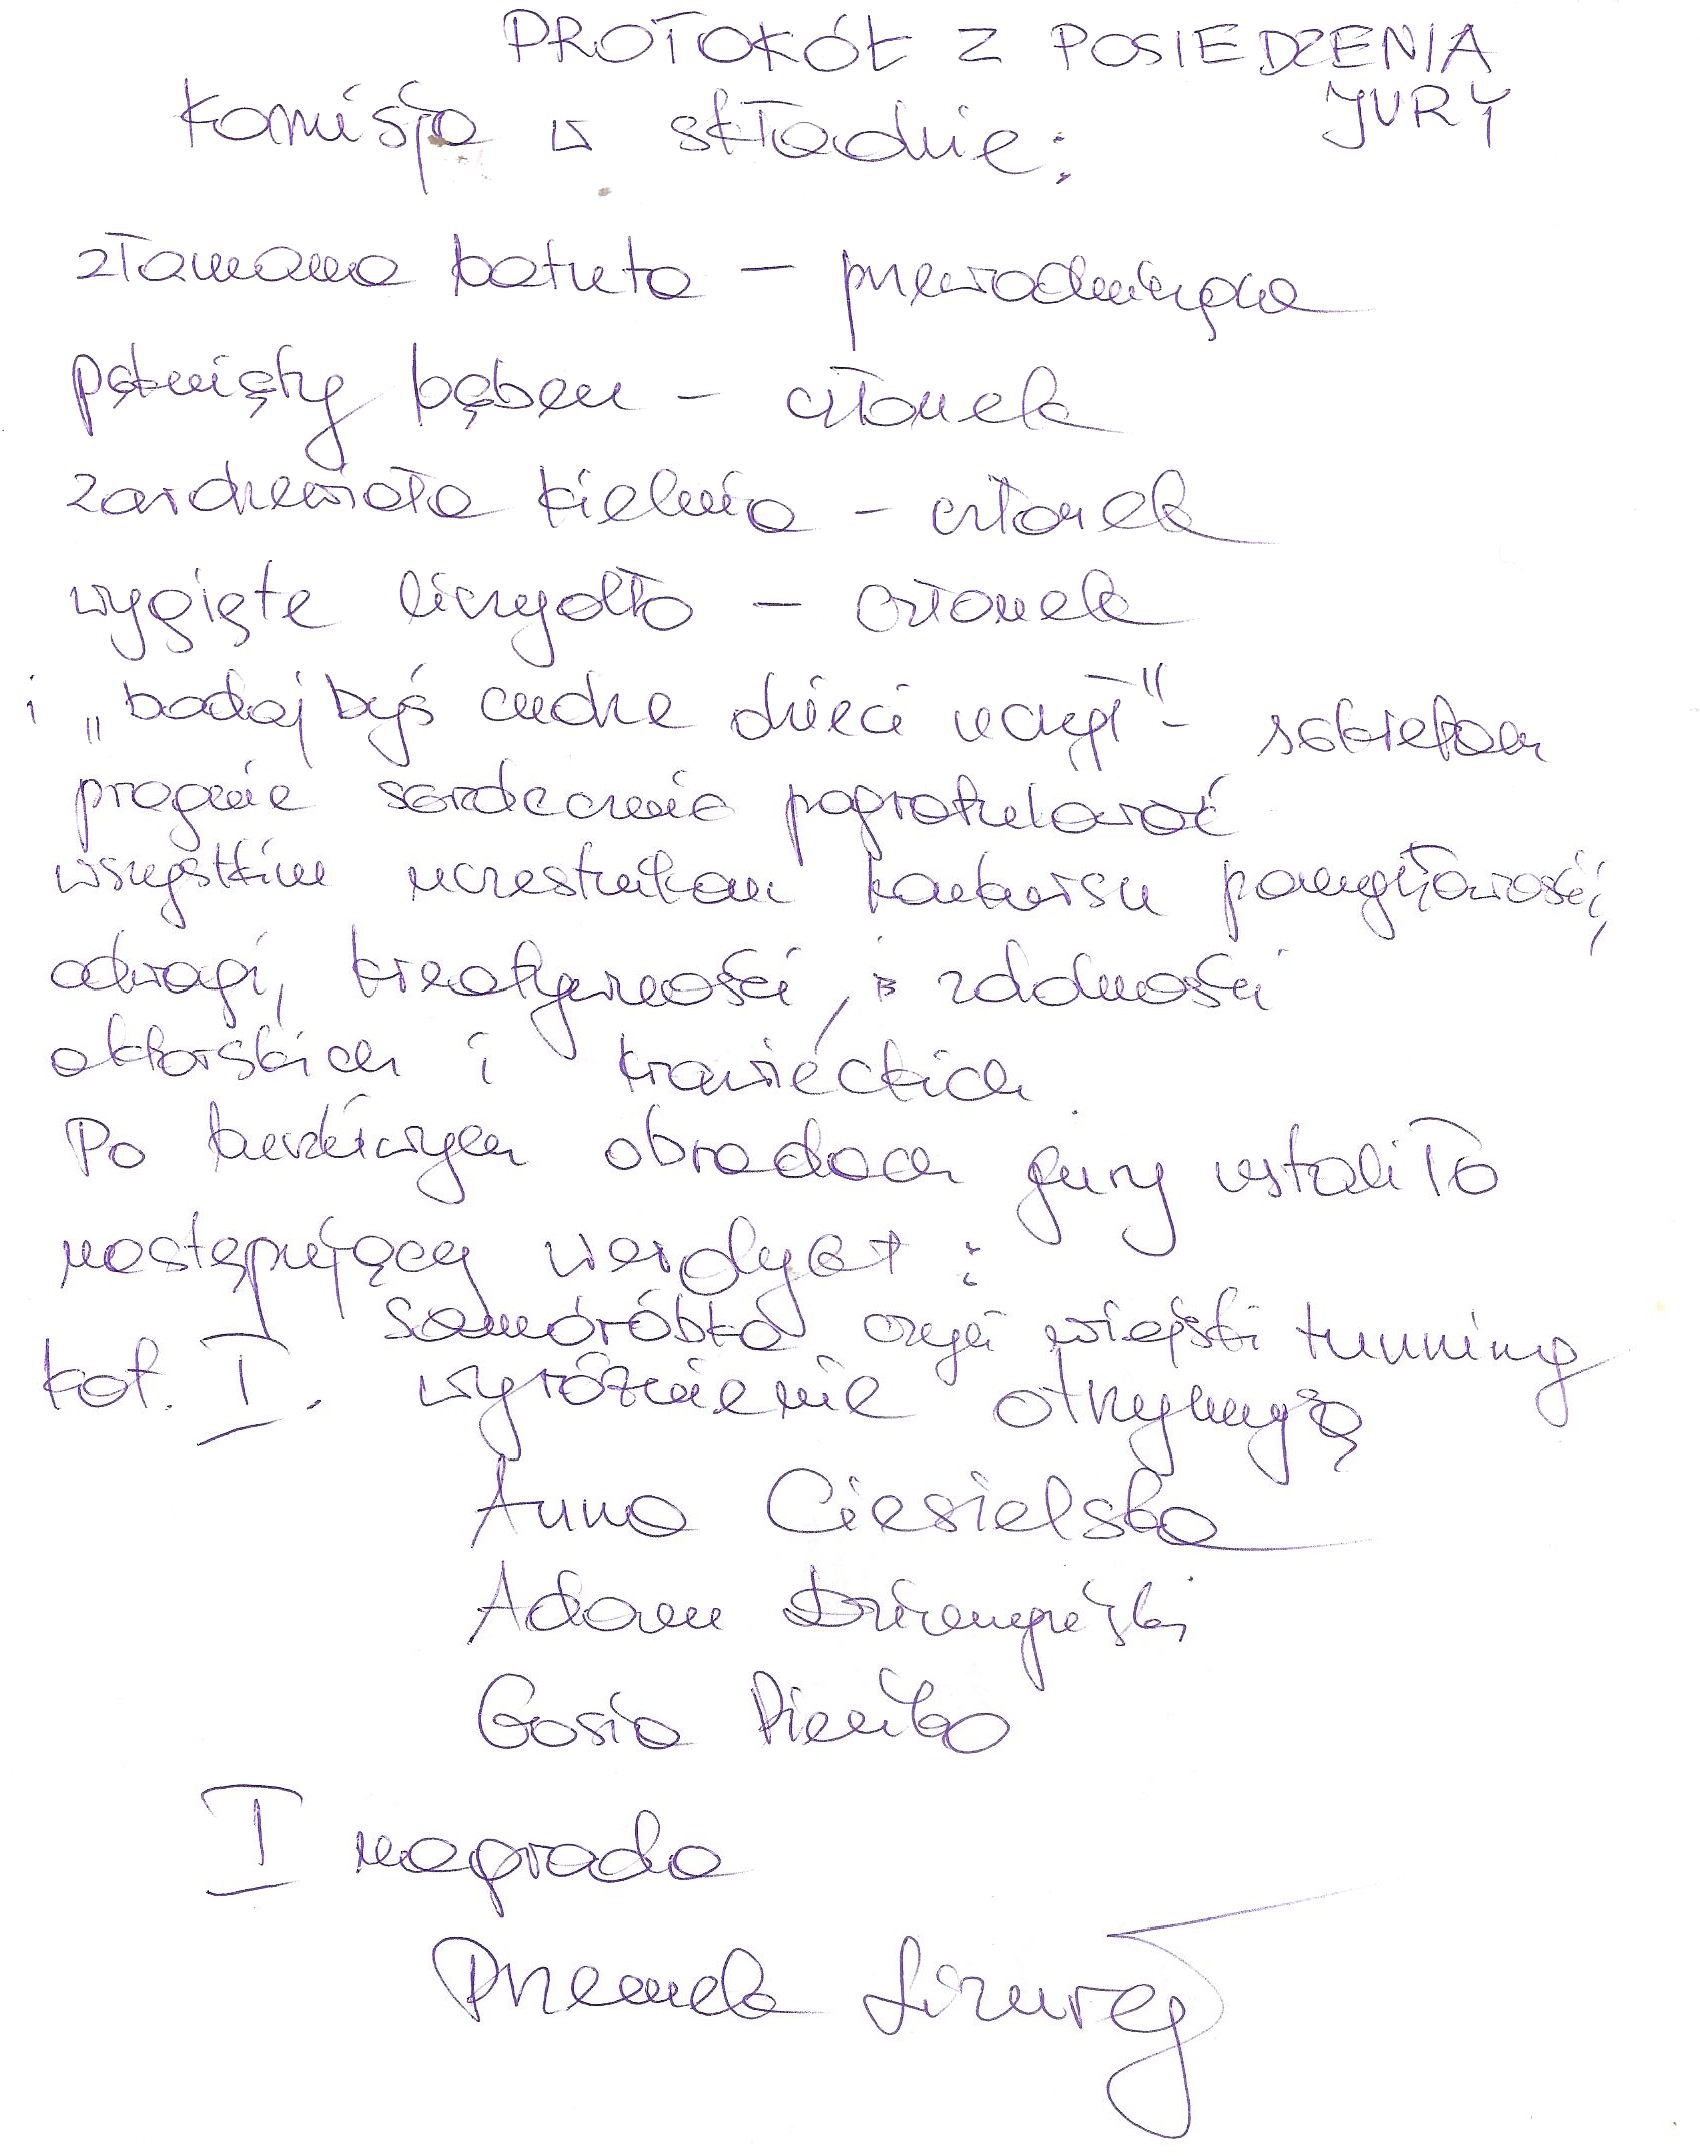 PROTOKÓŁ Z POSIEDZENIA
JURY
Komisja w składzie:
złamana batuta – przewodnicząca
pęknięty bęben – członek
zardzewiała kielnia – członek
wygięte liczydło – członek
i „bodaj byś cudze dzieci uczył" – sekretarz
pragnie serdecznie pogratulować
wszystkim uczestnikom konkursu pomysłowości,
odwagi, kreatywności, i zdolności
aktorskich i krawieckich.
Po burzliwych obradach jury ustaliło
następujący werdykt:
samoróbka czyli wiejski tunning
kat. I. wyróżnienie otrzymują
Anna Ciesielska
Adam
Gosia Pieńko
I nagroda
Przemek